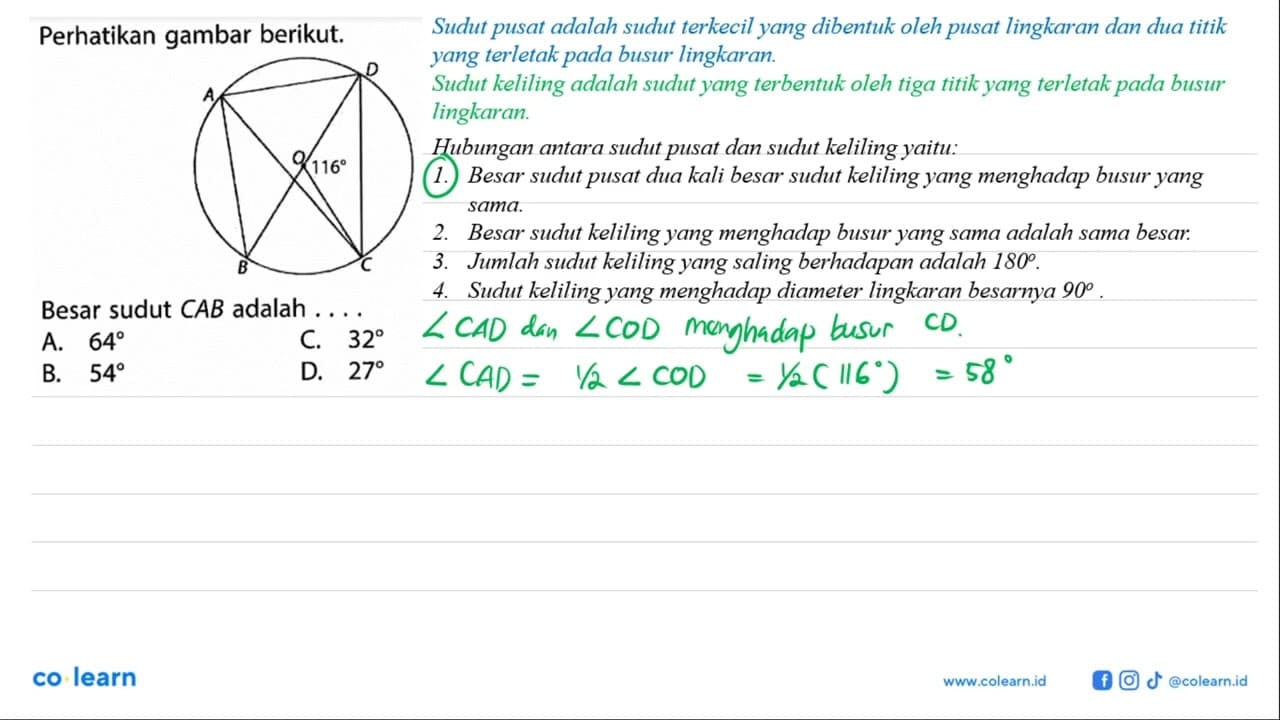 Perhatikan gambar berikut.
A
D
O
116°
B
C
Besar sudut CAB adalah . . . .
A. 64° C. 32°
B. 54° D. 27°
Sudut pusat adalah sudut terkecil yang dibentuk oleh pusat lingkaran dan dua titik
yang terletak pada busur lingkaran.
Sudut keliling adalah sudut yang terbentuk oleh tiga titik yang terletak pada busur
lingkaran.
Hubungan antara sudut pusat dan sudut keliling yaitu:
1. Besar sudut pusat dua kali besar sudut keliling yang menghadap busur yang
sama.
2. Besar sudut keliling yang menghadap busur yang sama adalah sama besar.
3. Jumlah sudut keliling yang saling berhadapan adalah 180°.
4. Sudut keliling yang menghadap diameter lingkaran besarnya 90° .
∠CAD dan ∠COD menghadap busur CD.
∠CAD = ½ ∠COD = ½ (116°) = 58°
co learn
www.colearn.id
@colearn.id